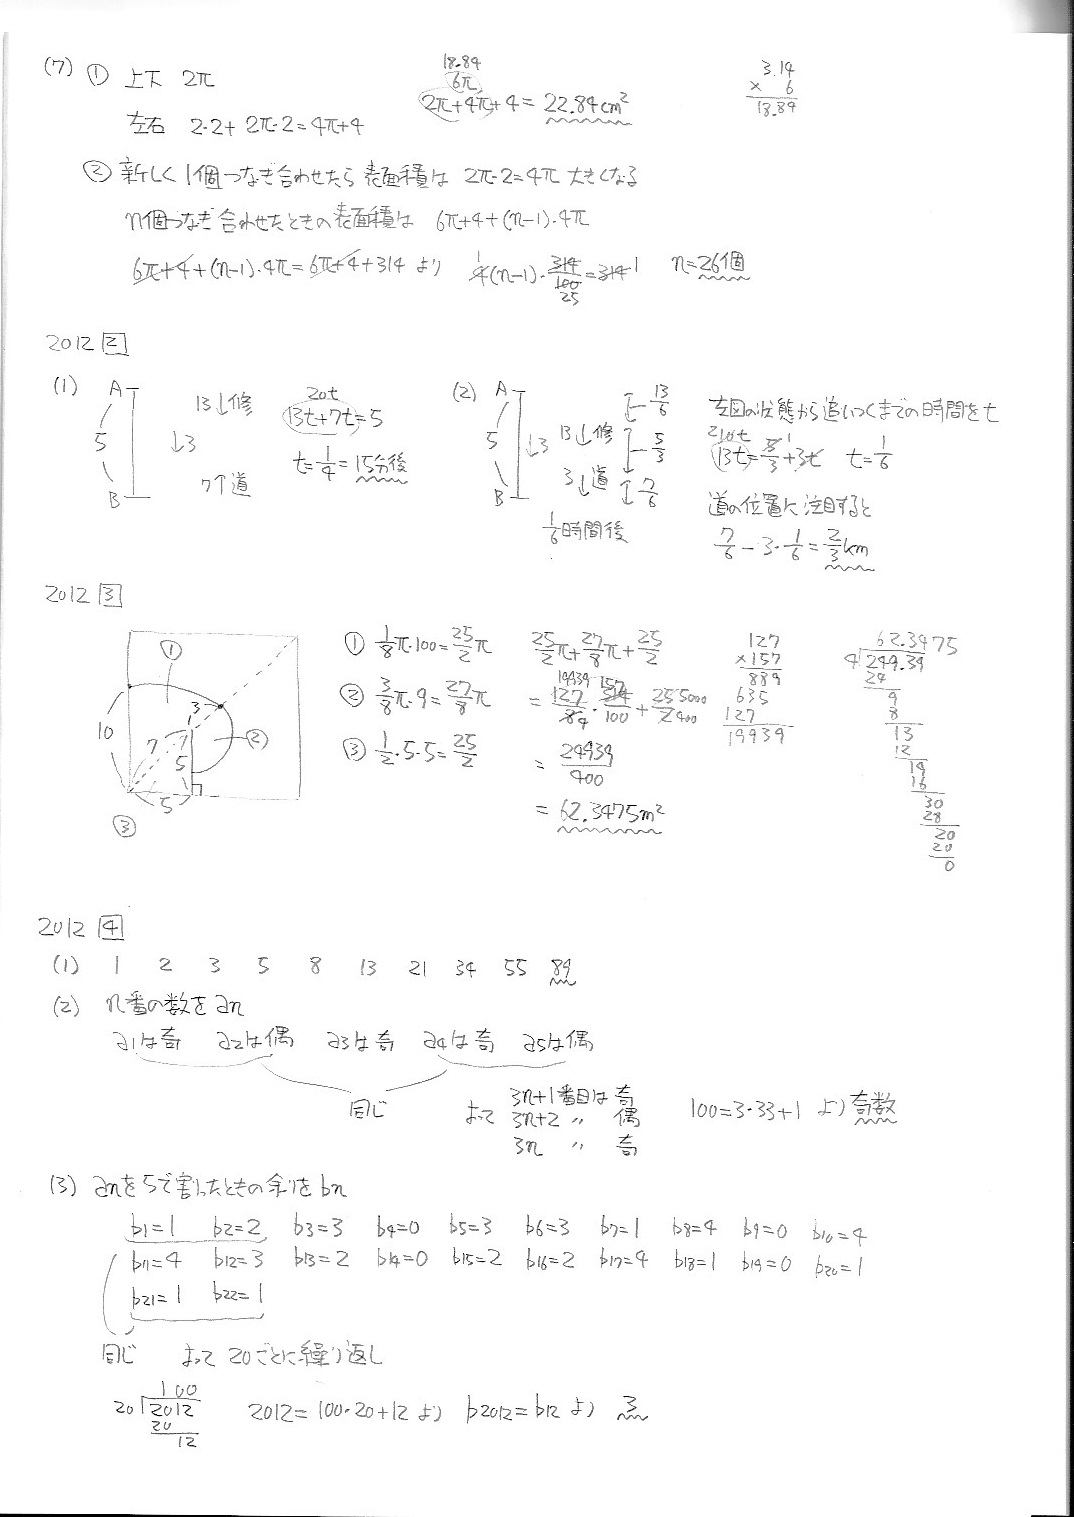 (7) ① 上下 2π
左右 2·2+2π·2=4π+4
18.84
6π
2π+4π+4=22.84cm²
3.14
× 6
18.84
② 新しく1個つなぎ合わせたら表面積は 2π·2=4π 大きくなる
n個つなぎ合わせたときの表面積は 6π+4+(n-1)·4π
6π+4+(n-1)·4π=6π+4+314 より 4(n-1)·314/100=314 n=26個
1 25 1
2012 2
(1) A 5 B
13↓修
↓3
7↑道
20t
13t+7t=5
t=1/4=15分後
(2) A 5 B
↓3
13↓修
3↓道
13/6
5/3
7/6
1/6時間後
左図の状態から追いつくまでの時間をt
210t
13t=5/3+3t t=1/6
道の位置に注目すると
7/6-3·1/6=2/3km
2012 3
① ② ③ 10 7 7 3 5 5
① 1/8π·100=25/2π
② 3/8π·9=27/8π
③ 1/2·5·5=25/2
25/2π+27/8π+25/2
=127/84·314/100+25/2
19939 157 5000 400
=24939/400
=62.3475m²
127
×157
889
635
127
19939
62.3475
4)249.39
24
9
8
13
12
19
16
30
28
20
20
0
2012 4
(1) 1 2 3 5 8 13 21 34 55 89
(2) n番の数をan
a1は奇 a2は偶 a3は奇 a4は奇 a5は偶
同じ
よって 3n+1番目は奇
3n+2 〃 偶
3n 〃 奇
100=3·33+1 より奇数
(3) anを5で割ったときの余りをbn
b1=1 b2=2 b3=3 b4=0 b5=3 b6=3 b7=1 b8=4 b9=0 b10=4
b11=4 b12=3 b13=2 b14=0 b15=2 b16=2 b17=4 b18=1 b19=0 b20=1
b21=1 b22=1
同じ よって 20ごとに繰り返し
100
20)2012
20
12
2012=100·20+12 より b2012=b12 より 3